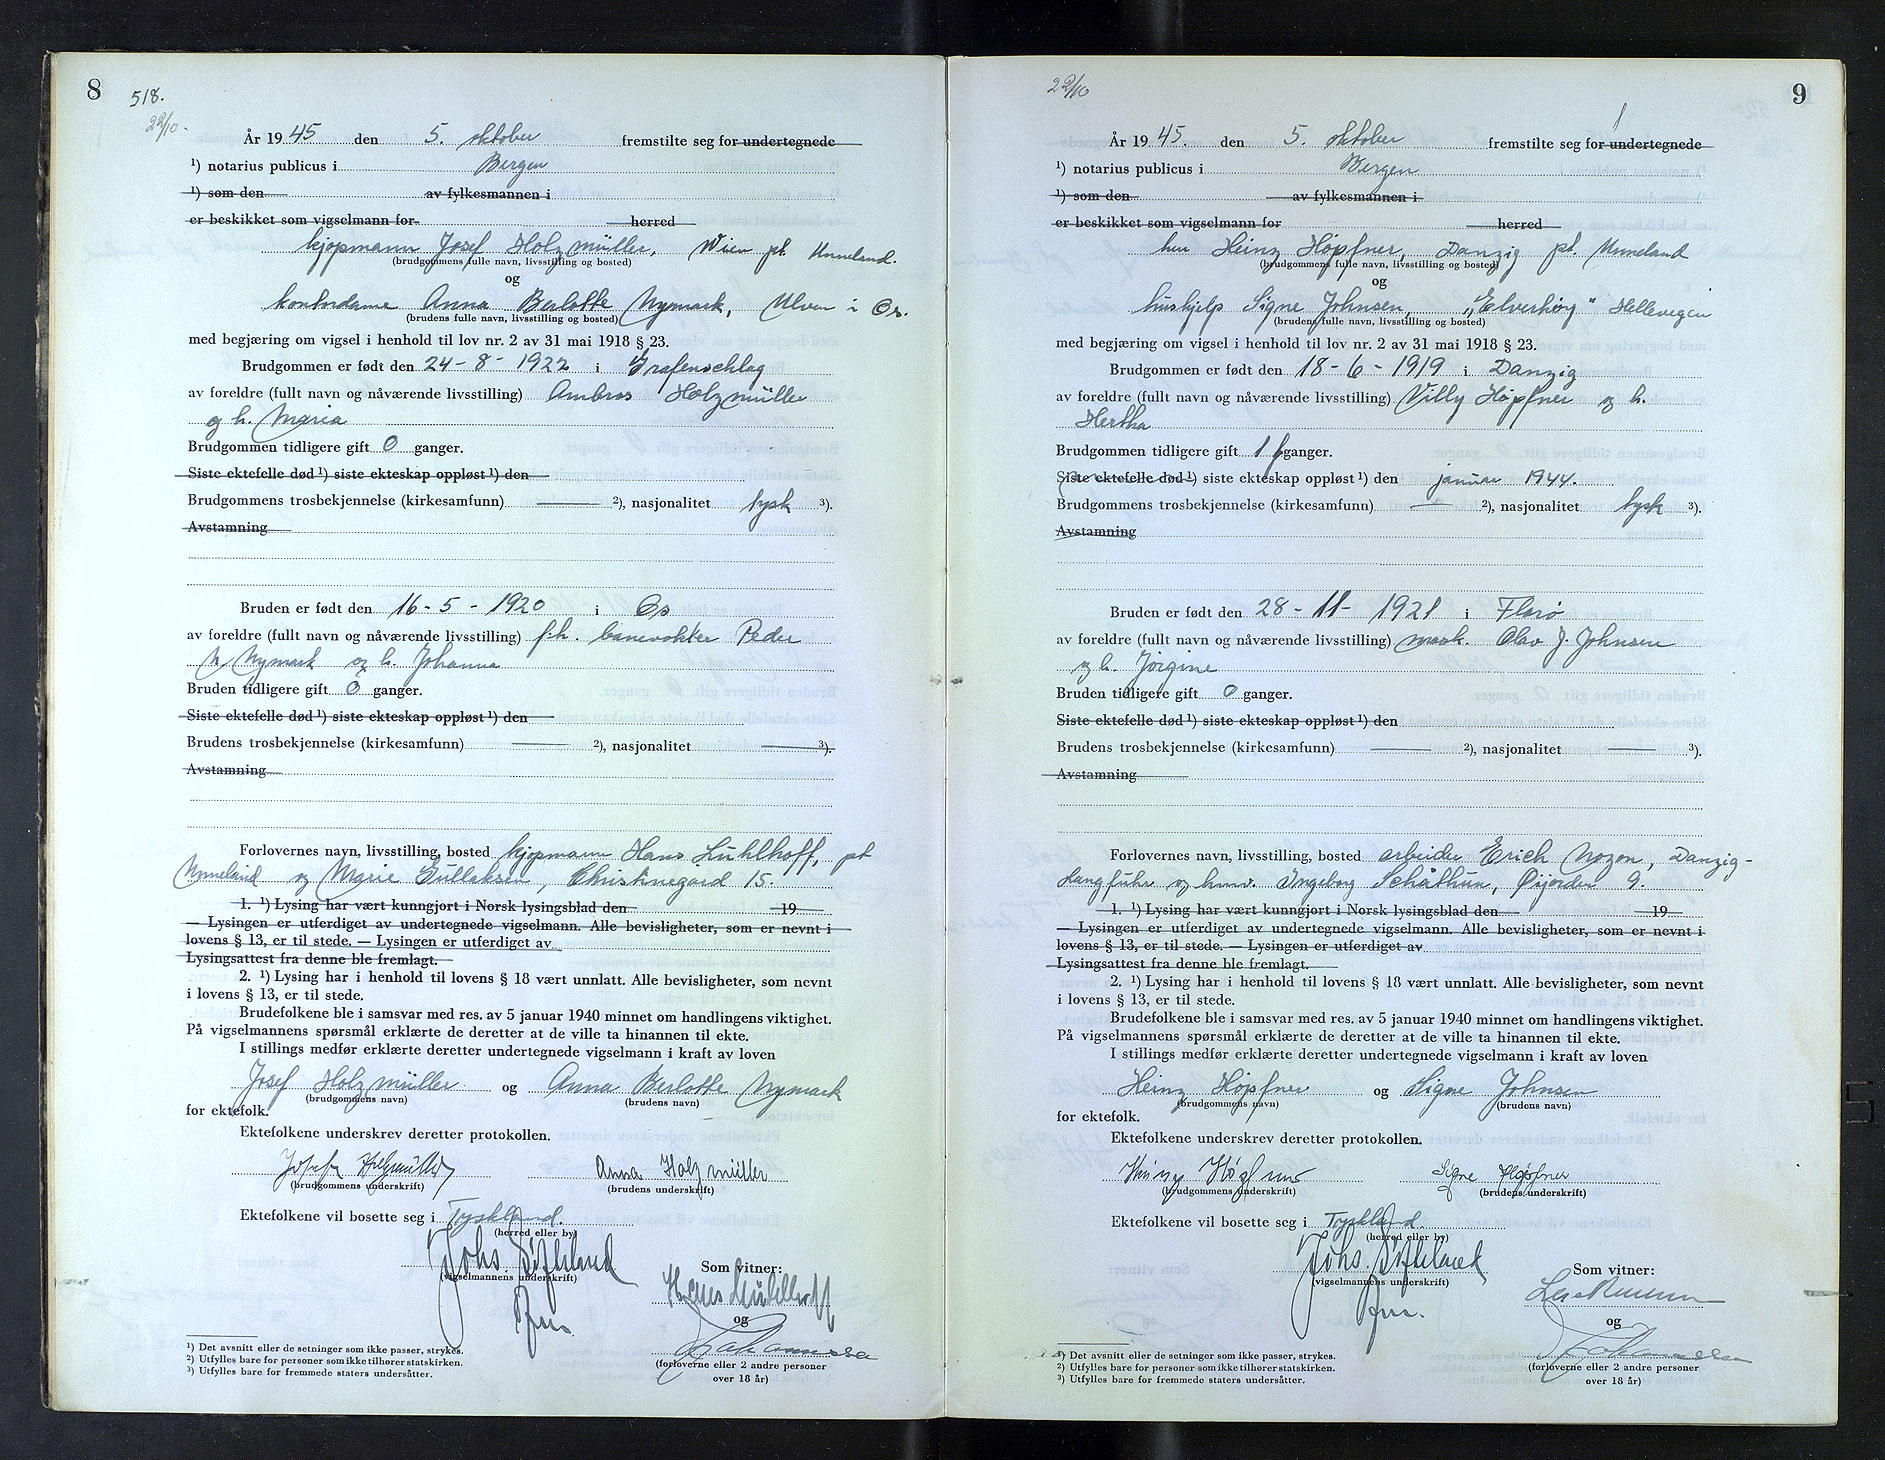 8
518.
22/10.
År 1945 den 5. oktober fremstilte seg for undertegnede
¹) notarius publicus i Bergen
¹) som den av fylkesmannen i
er beskikket som vigselmann for herred
kjøpmann Josef Holzmüller, Wien pt. Unneland.
(brudgommens fulle navn, livsstilling og bosted)
og
kontordame Anna Berlotte Nymark, Ulven i Os.
(brudens fulle navn, livsstilling og bosted)
med begjæring om vigsel i henhold til lov nr. 2 av 31 mai 1918 § 23.
Brudgommen er født den 24-8-1922 i Grafenschlag
av foreldre (fullt navn og nåværende livsstilling) Ambros Holzmüller
og h. Maria
Brudgommen tidligere gift 0 ganger.
Siste ektefelle død ¹) siste ekteskap oppløst ¹) den
Brudgommens trosbekjennelse (kirkesamfunn) ²), nasjonalitet tysk ³).
Avstamning
Bruden er født den 16-5-1920 i Os
av foreldre (fullt navn og nåværende livsstilling) fh. banevokter Peder
N Nymark og h. Johanna
Bruden tidligere gift 0 ganger.
Siste ektefelle død ¹) siste ekteskap oppløst ¹) den
Brudens trosbekjennelse (kirkesamfunn) ²), nasjonalitet ³).
Avstamning
Forlovernes navn, livsstilling, bosted kjøpmann Hans Luhlhoff, pt
Unneland og Marie Tullaksen, Christinegard 15.
1. ¹) Lysing har vært kunngjort i Norsk lysingsblad den 19
— Lysingen er utferdiget av undertegnede vigselmann. Alle bevisligheter, som er nevnt i
lovens § 13, er til stede. — Lysingen er utferdiget av
Lysingsattest fra denne ble fremlagt.
2. ¹) Lysing har i henhold til lovens § 18 vært unnlatt. Alle bevisligheter, som nevnt
i lovens § 13, er til stede.
Brudefolkene ble i samsvar med res. av 5 januar 1940 minnet om handlingens viktighet.
På vigselmannens spørsmål erklærte de deretter at de ville ta hinannen til ekte.
I stillings medfør erklærte deretter undertegnede vigselmann i kraft av loven
Josef Holzmüller og Anna Berlotte Nymark
(brudgommens navn) (brudens navn)
for ektefolk.
Ektefolkene underskrev deretter protokollen.
Josef Holzmüller Anna Holzmüller
(brudgommens underskrift) (brudens underskrift)
Ektefolkene vil bosette seg i Tyskland.
(herred eller by)
Johs. Søfteland
(vigselmannens underskrift)
Som vitner:
og
(forloverne eller 2 andre personer
over 18 år)
¹) Det avsnitt eller de setninger som ikke passer, strykes.
²) Utfylles bare for personer som ikke tilhører statskirken.
³) Utfylles bare for fremmede staters undersåtter.
22/10
9
År 1945. den 5. oktober fremstilte seg for undertegnede
¹) notarius publicus i Bergen
¹) som den av fylkesmannen i
er beskikket som vigselmann for herred
herr Heinz Höpfner, Danzig pt. Unneland
(brudgommens fulle navn, livsstilling og bosted)
og
hushjelp Signe Johnsen, "Elverhøy" Hellevegen
(brudens fulle navn, livsstilling og bosted)
med begjæring om vigsel i henhold til lov nr. 2 av 31 mai 1918 § 23.
Brudgommen er født den 18-6-1919 i Danzig
av foreldre (fullt navn og nåværende livsstilling) Villy Höpfner og h.
Hertha
Brudgommen tidligere gift 1 ganger.
Siste ektefelle død ¹) siste ekteskap oppløst ¹) den januar 1944.
Brudgommens trosbekjennelse (kirkesamfunn) ²), nasjonalitet tysk ³).
Avstamning
Bruden er født den 28-11-1921 i Florø
av foreldre (fullt navn og nåværende livsstilling) mask. Olav J. Johnsen
og h. Jørgine
Bruden tidligere gift 0 ganger.
Siste ektefelle død ¹) siste ekteskap oppløst ¹) den
Brudens trosbekjennelse (kirkesamfunn) ²), nasjonalitet ³).
Avstamning
Forlovernes navn, livsstilling, bosted arbeider Erich Nozon, Danzig-
Langfuhr og Ingeborg Schåthun, Øijorden 9.
1. ¹) Lysing har vært kunngjort i Norsk lysingsblad den 19
— Lysingen er utferdiget av undertegnede vigselmann. Alle bevisligheter, som er nevnt i
lovens § 13, er til stede. — Lysingen er utferdiget av
Lysingsattest fra denne ble fremlagt.
2. ¹) Lysing har i henhold til lovens § 18 vært unnlatt. Alle bevisligheter, som nevnt
i lovens § 13, er til stede.
Brudefolkene ble i samsvar med res. av 5 januar 1940 minnet om handlingens viktighet.
På vigselmannens spørsmål erklærte de deretter at de ville ta hinannen til ekte.
I stillings medfør erklærte deretter undertegnede vigselmann i kraft av loven
Heinz Höpfner og Signe Johnsen
(brudgommens navn) (brudens navn)
for ektefolk.
Ektefolkene underskrev deretter protokollen.
Signe Höpfner
(brudgommens underskrift) (brudens underskrift)
Ektefolkene vil bosette seg i Tyskland.
(herred eller by)
Johs. Søfteland
(vigselmannens underskrift)
Som vitner:
og
(forloverne eller 2 andre personer
over 18 år)
¹) Det avsnitt eller de setninger som ikke passer, strykes.
²) Utfylles bare for personer som ikke tilhører statskirken.
³) Utfylles bare for fremmede staters undersåtter.